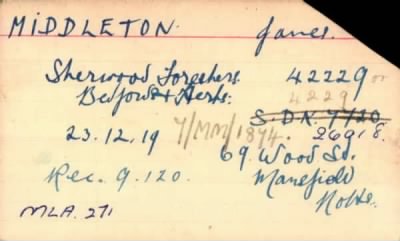 MIDDLETON. James.
Sherwood Foresters 42229 or
Bedfords & Herts. 4229
S.D.N. 7/20
23.12.19 7/MM/1874. 26918.
69. Wood St.
Rec. 9.120. Mansfield
Notts.
MLA. 271